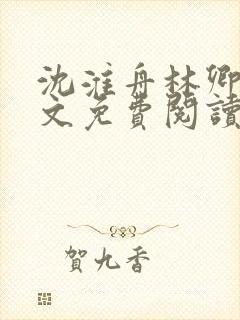 沈淮舟林卿
文免費閱讀
賀九香